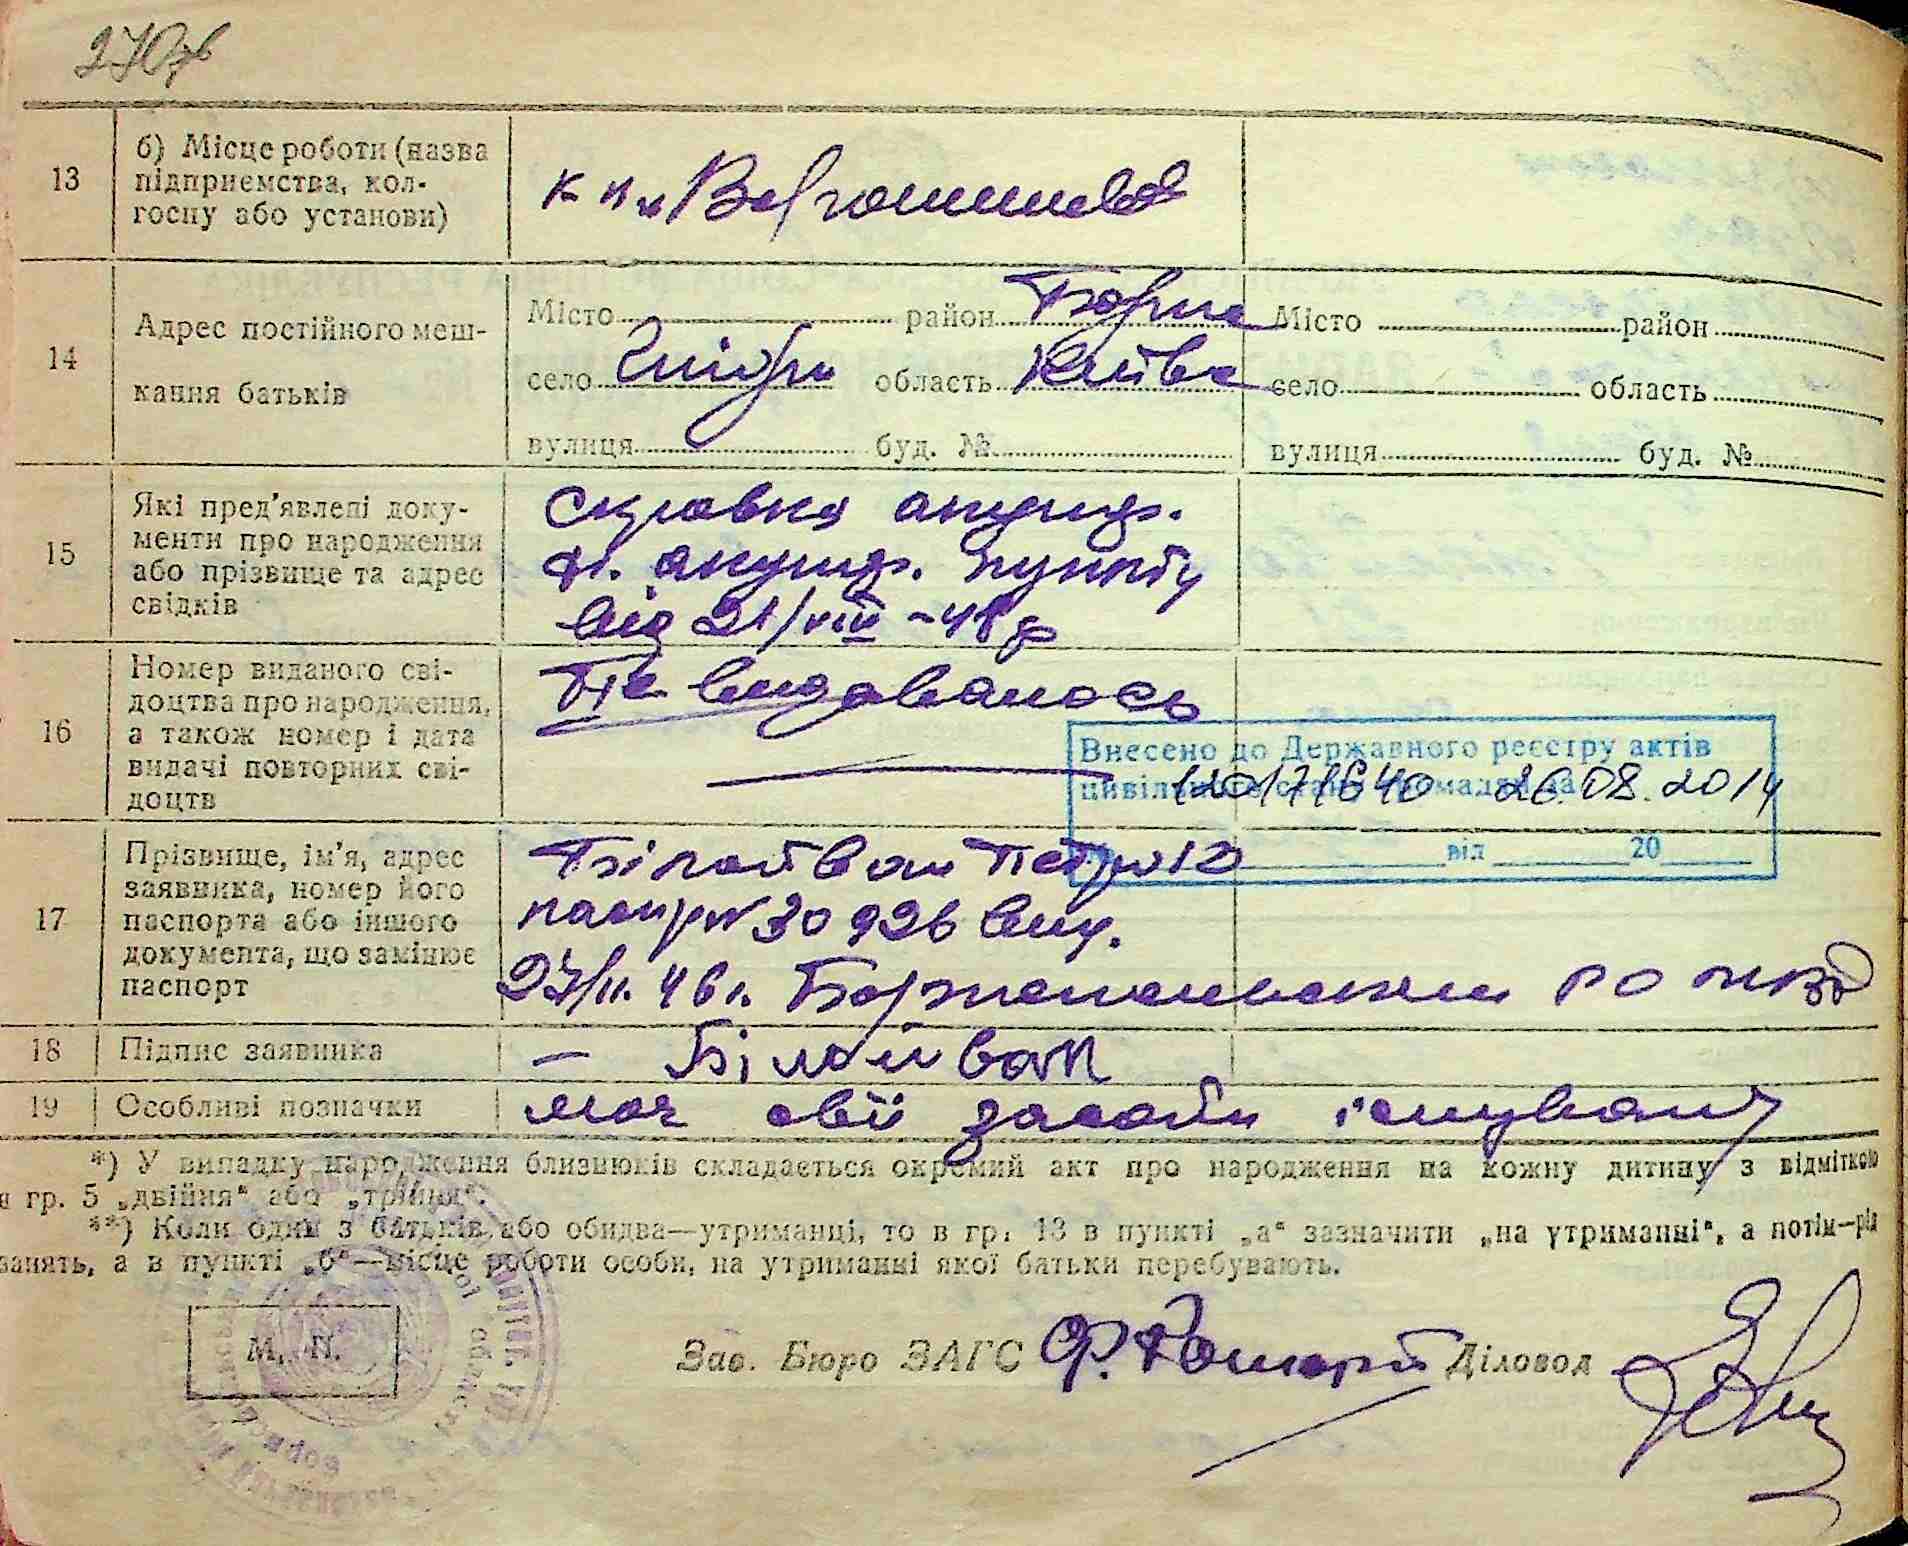 270зв
13 б) Місце роботи (назва
підприємства, кол-
госпу або установи)
к-п
14 Адрес постійного меш-
кання батьків
Місто район Борис
село область Київс
вулиця буд. №
Місто район
село область
вулиця буд. №
15 Які пред'явлені доку-
менти про народження
або прізвище та адрес
свідків
Справка акушер.
акушер. пункту
від 21/VIII-48 р
16 Номер виданого сві-
доцтва про народження,
а також номер і дата
видачі повторних сві-
доцтв
Не видавалось
Внесено до Державного реєстру актів
цивільного стану громадян за
120171640 26.08.2014
від 20
17 Прізвище, ім'я, адрес
заявника, номер його
паспорта або іншого
документа, що замінює
паспорт
Біло Іван Петро
паспр № 30926 вид.
27/II. 46 р. РО НКВД
18 Підпис заявника
19 Особливі позначки
має свої засоби існування
*) У випадку народження близнюків складається окремий акт про народження на кожну дитину з відміткою
гр. 5 „двійня“ або „трійня“.
**) Коли один з батьків або обидва—утриманці, то в гр. 13 в пункті „а“ зазначити „на утриманні“, а потім—рід
занять, а в пункті „б“—місце роботи особи, на утриманні якої батьки перебувають.
М. П.
Зав. Бюро ЗАГС Діловод